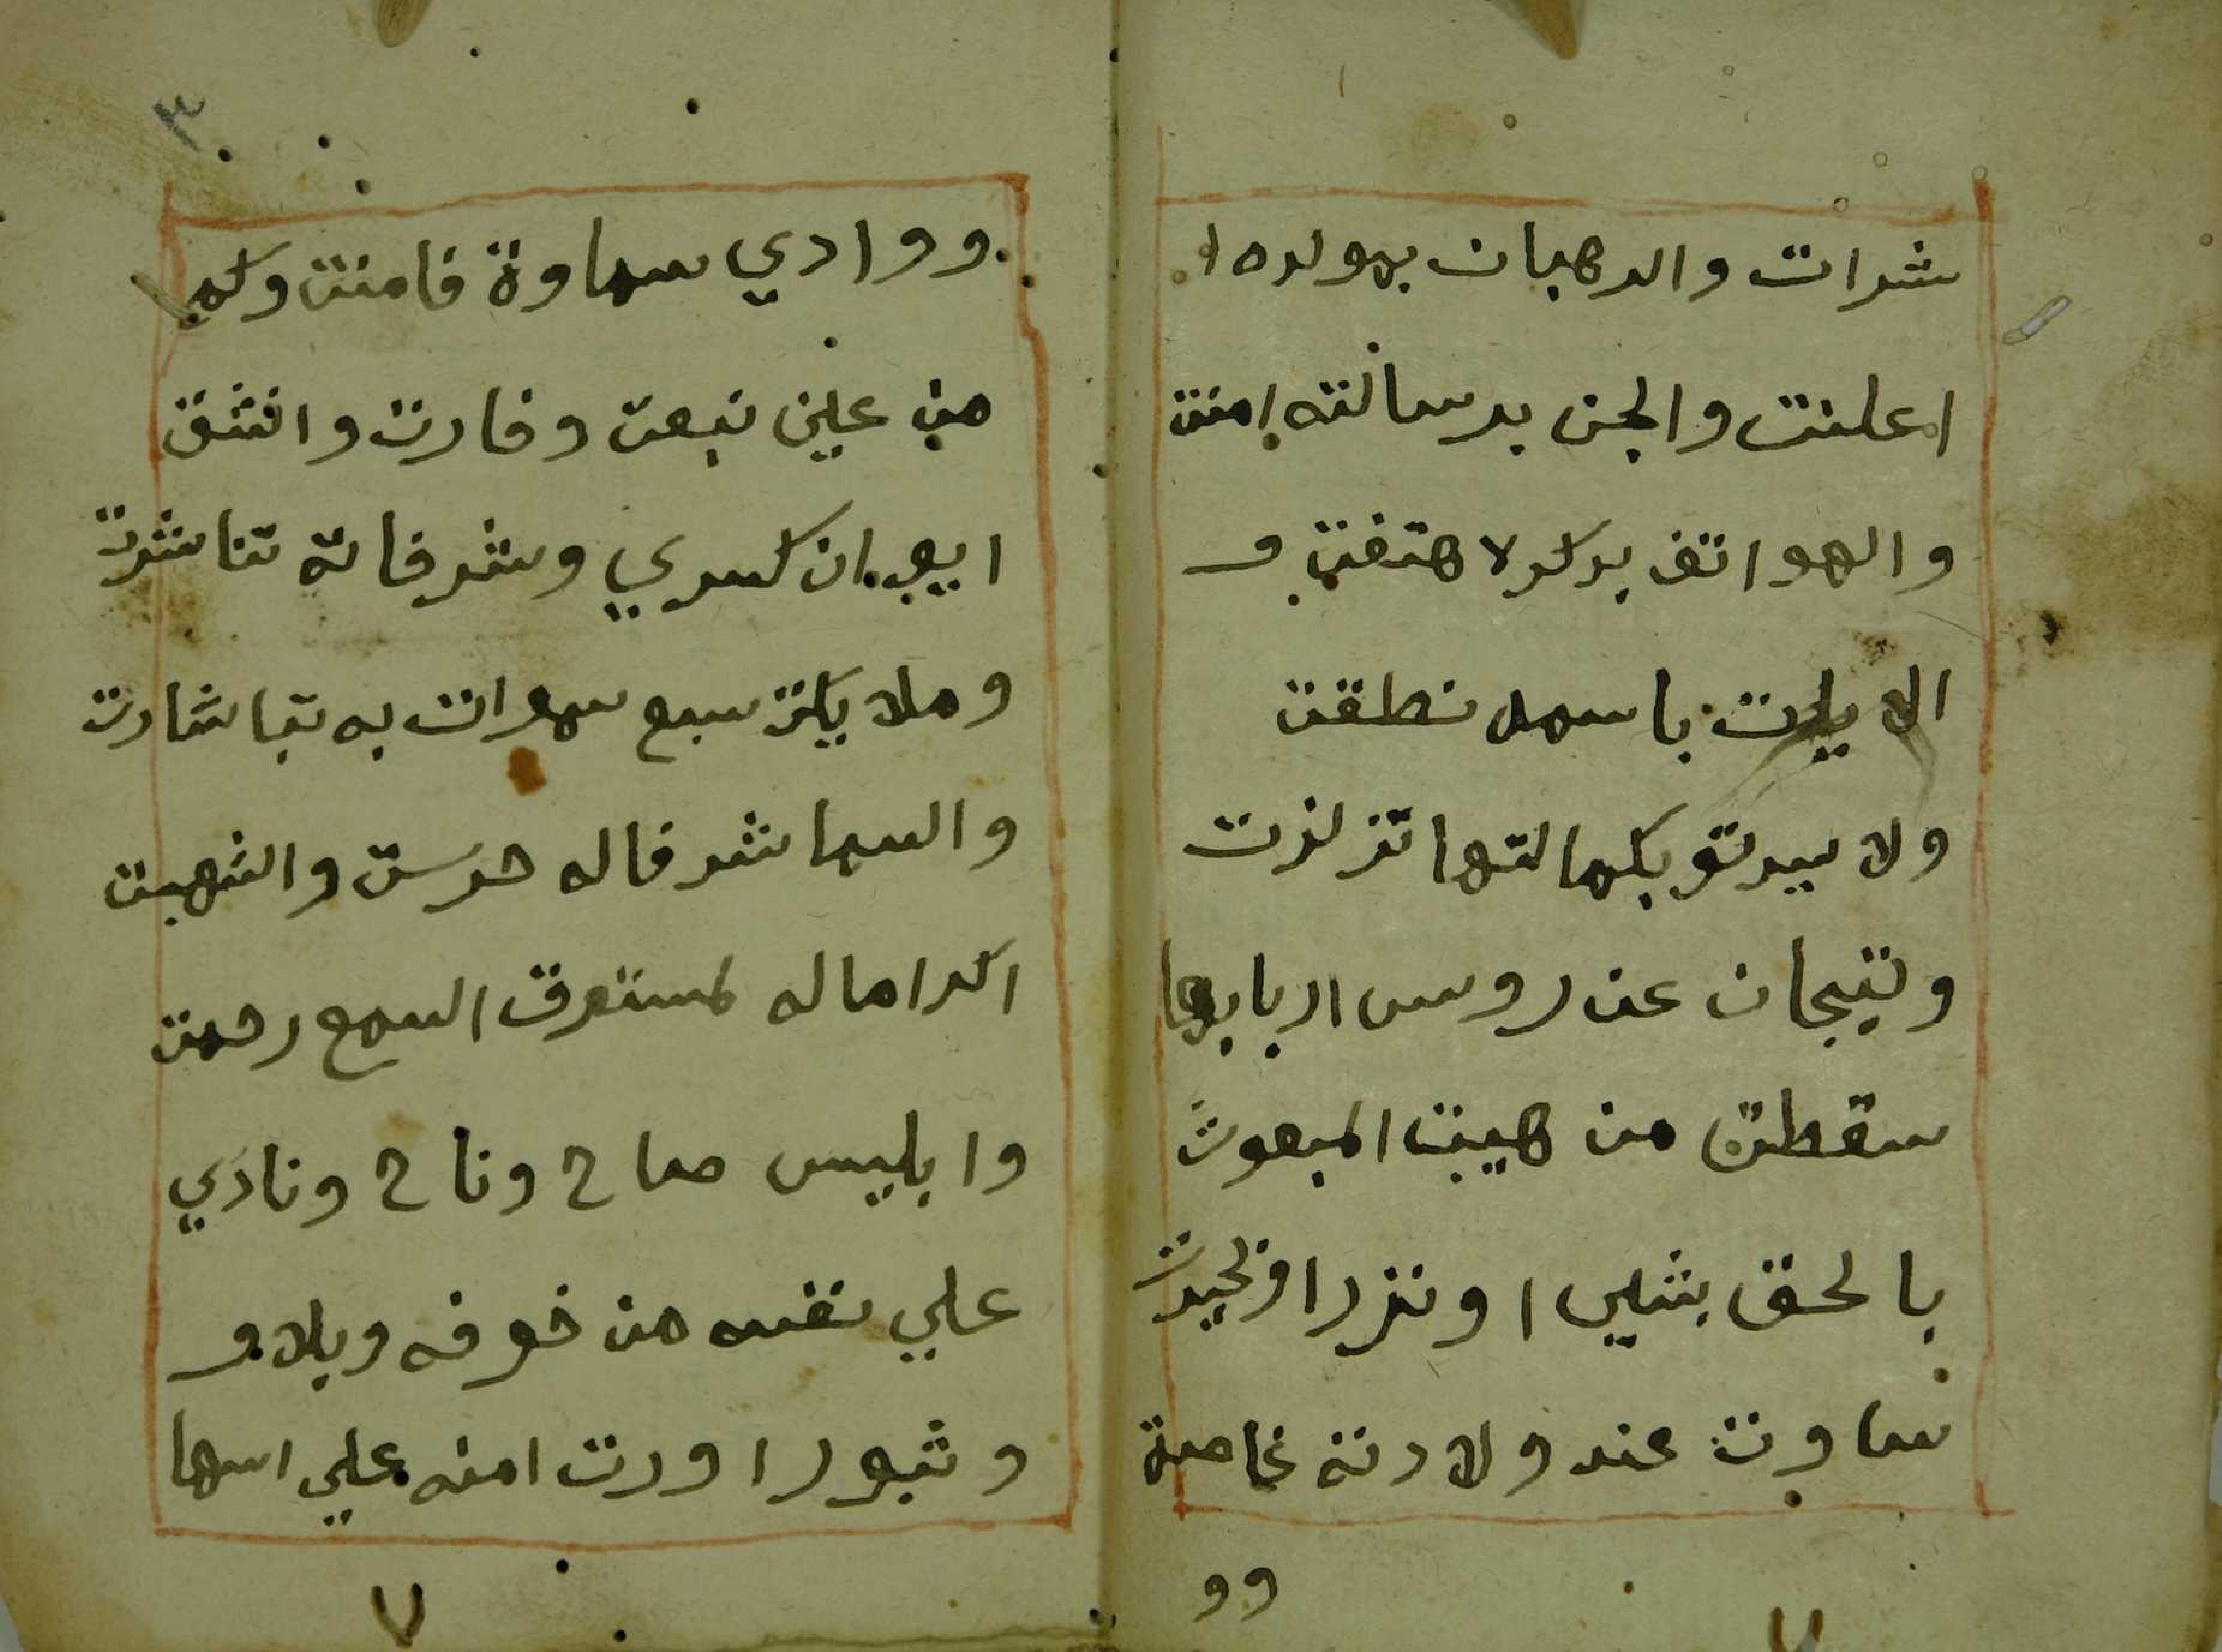 شرات والرهبان بمولده ا
اعلنت والجن برسالته امنت
والهواتف بدكره هتفت و
الايات باسمه نطقت
ولا سرتو بكمالتها تزلزت
وتيجان عن روس اربابها
سقطت من هيبت المبعوث
بالحق بشيرا ونزيرا وبحيرت
ساوت عند ولادته غاصة
وو
٣
ووادي سماوة فامنت وكم
من عين نبعت وفارت وانشق
ايوان كسري وشرفاته تناشرت
وملايكت سبع سموات به تباشارت
والسما شرفا له حرست والشهبت
اكراما له لمسترق السمع رحمت
وابليس صاح وناح ونادي
علي نفسه من خوفه ويلا و
وثبورا ورت امنه علي اسها
٧
٧